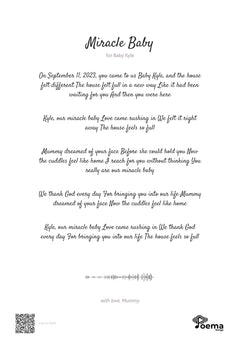 Miracle Baby
for Baby Kyle
On September 11, 2023, you came to us Baby Kyle, and the house
felt different The house felt full in a new way Like it had been
waiting for you And then you were here
Kyle, our miracle baby Love came rushing in We felt it right
away The house feels so full
Mummy dreamed of your face Before she could hold you Now
the cuddles feel like home I reach for you without thinking You
really are our miracle baby
We thank God every day For bringing you into our life Mummy
dreamed of your face Now the cuddles feel like home
Kyle, our miracle baby Love came rushing in We thank God
every day For bringing you into our life The house feels so full
with love, Mummy
Poema